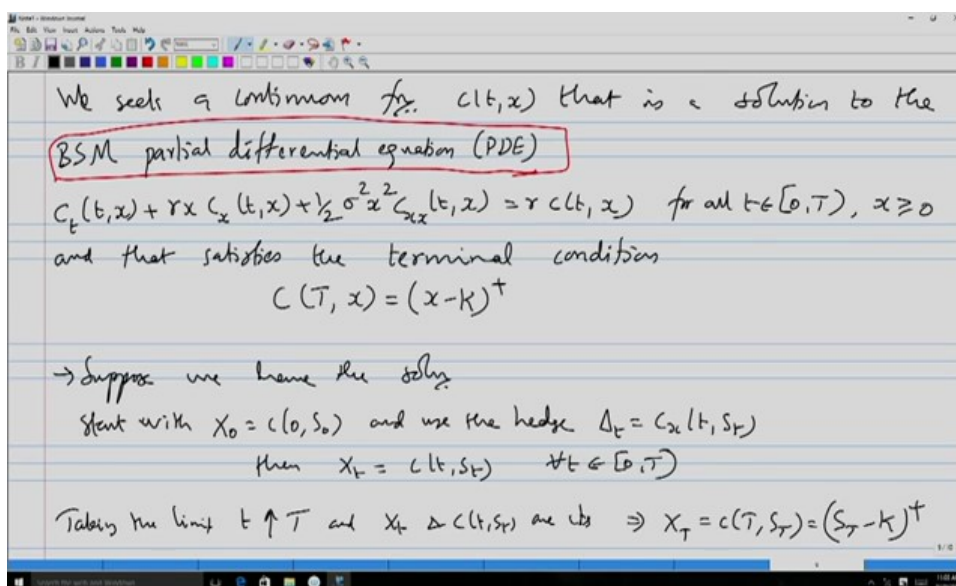 We seek a continuous fn. c(t,x) that is a solution to the
BSM partial differential equation (PDE)
C_t(t,x) + rx C_x(t,x) + 1/2 σ²x² C_xx(t,x) = r c(t,x) for all t∈[0,T), x ≥ 0
and that satisfies the terminal condition
C(T, x) = (x-K)⁺
→ Suppose we have the soln.
Start with X_0 = c(0, S_0) and use the hedge Δ_t = C_x(t, S_t)
then X_t = c(t, S_t) ∀t ∈ [0,T)
Taking the limit t ↑ T and X_t & c(t,S_t) are cts ⇒ X_T = c(T, S_T) = (S_T - K)⁺